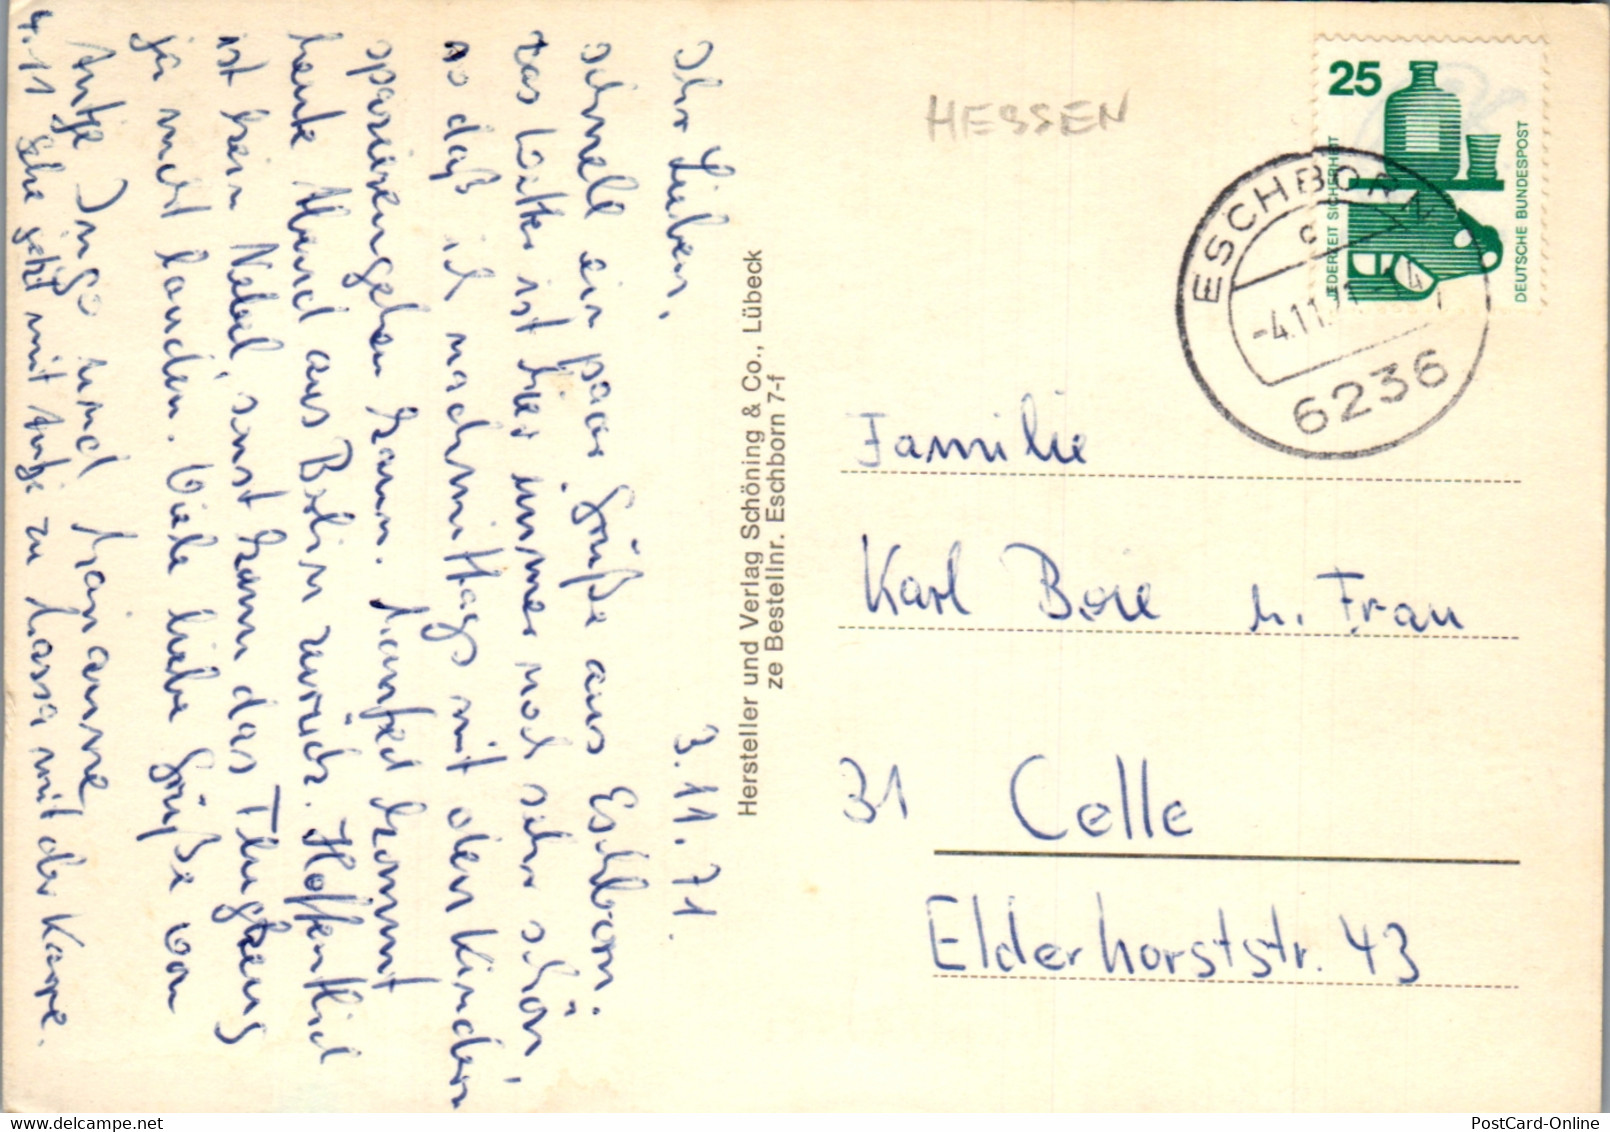 3.11.71
Ihr Lieben,
schnell ein paar Grüße aus Eschborn.
Das Wetter ist hier immer noch sehr schön,
so daß ich nachmittags mit den Kindern
spazierengehen kann. Manfred kommt
heute Abend aus Berlin zurück. Hoffentlich
ist kein Nebel, sonst kann das Flugzeug
ja nicht landen. Viele liebe Grüße von
Antje Ingo und Marianne
4.11 Gehe jetzt mit Antje zu Massa mit der Karre.
Hersteller und Verlag Schöning & Co., Lübeck
ze Bestellnr. Eschborn 7-f
HESSEN
25
JEDERZEIT SICHERHEIT
DEUTSCHE BUNDESPOST
ESCHBORN
-4.11.71
6236
Familie
Karl Boie u. Frau
31 Celle
Elderhorststr. 43
PostCard-Online